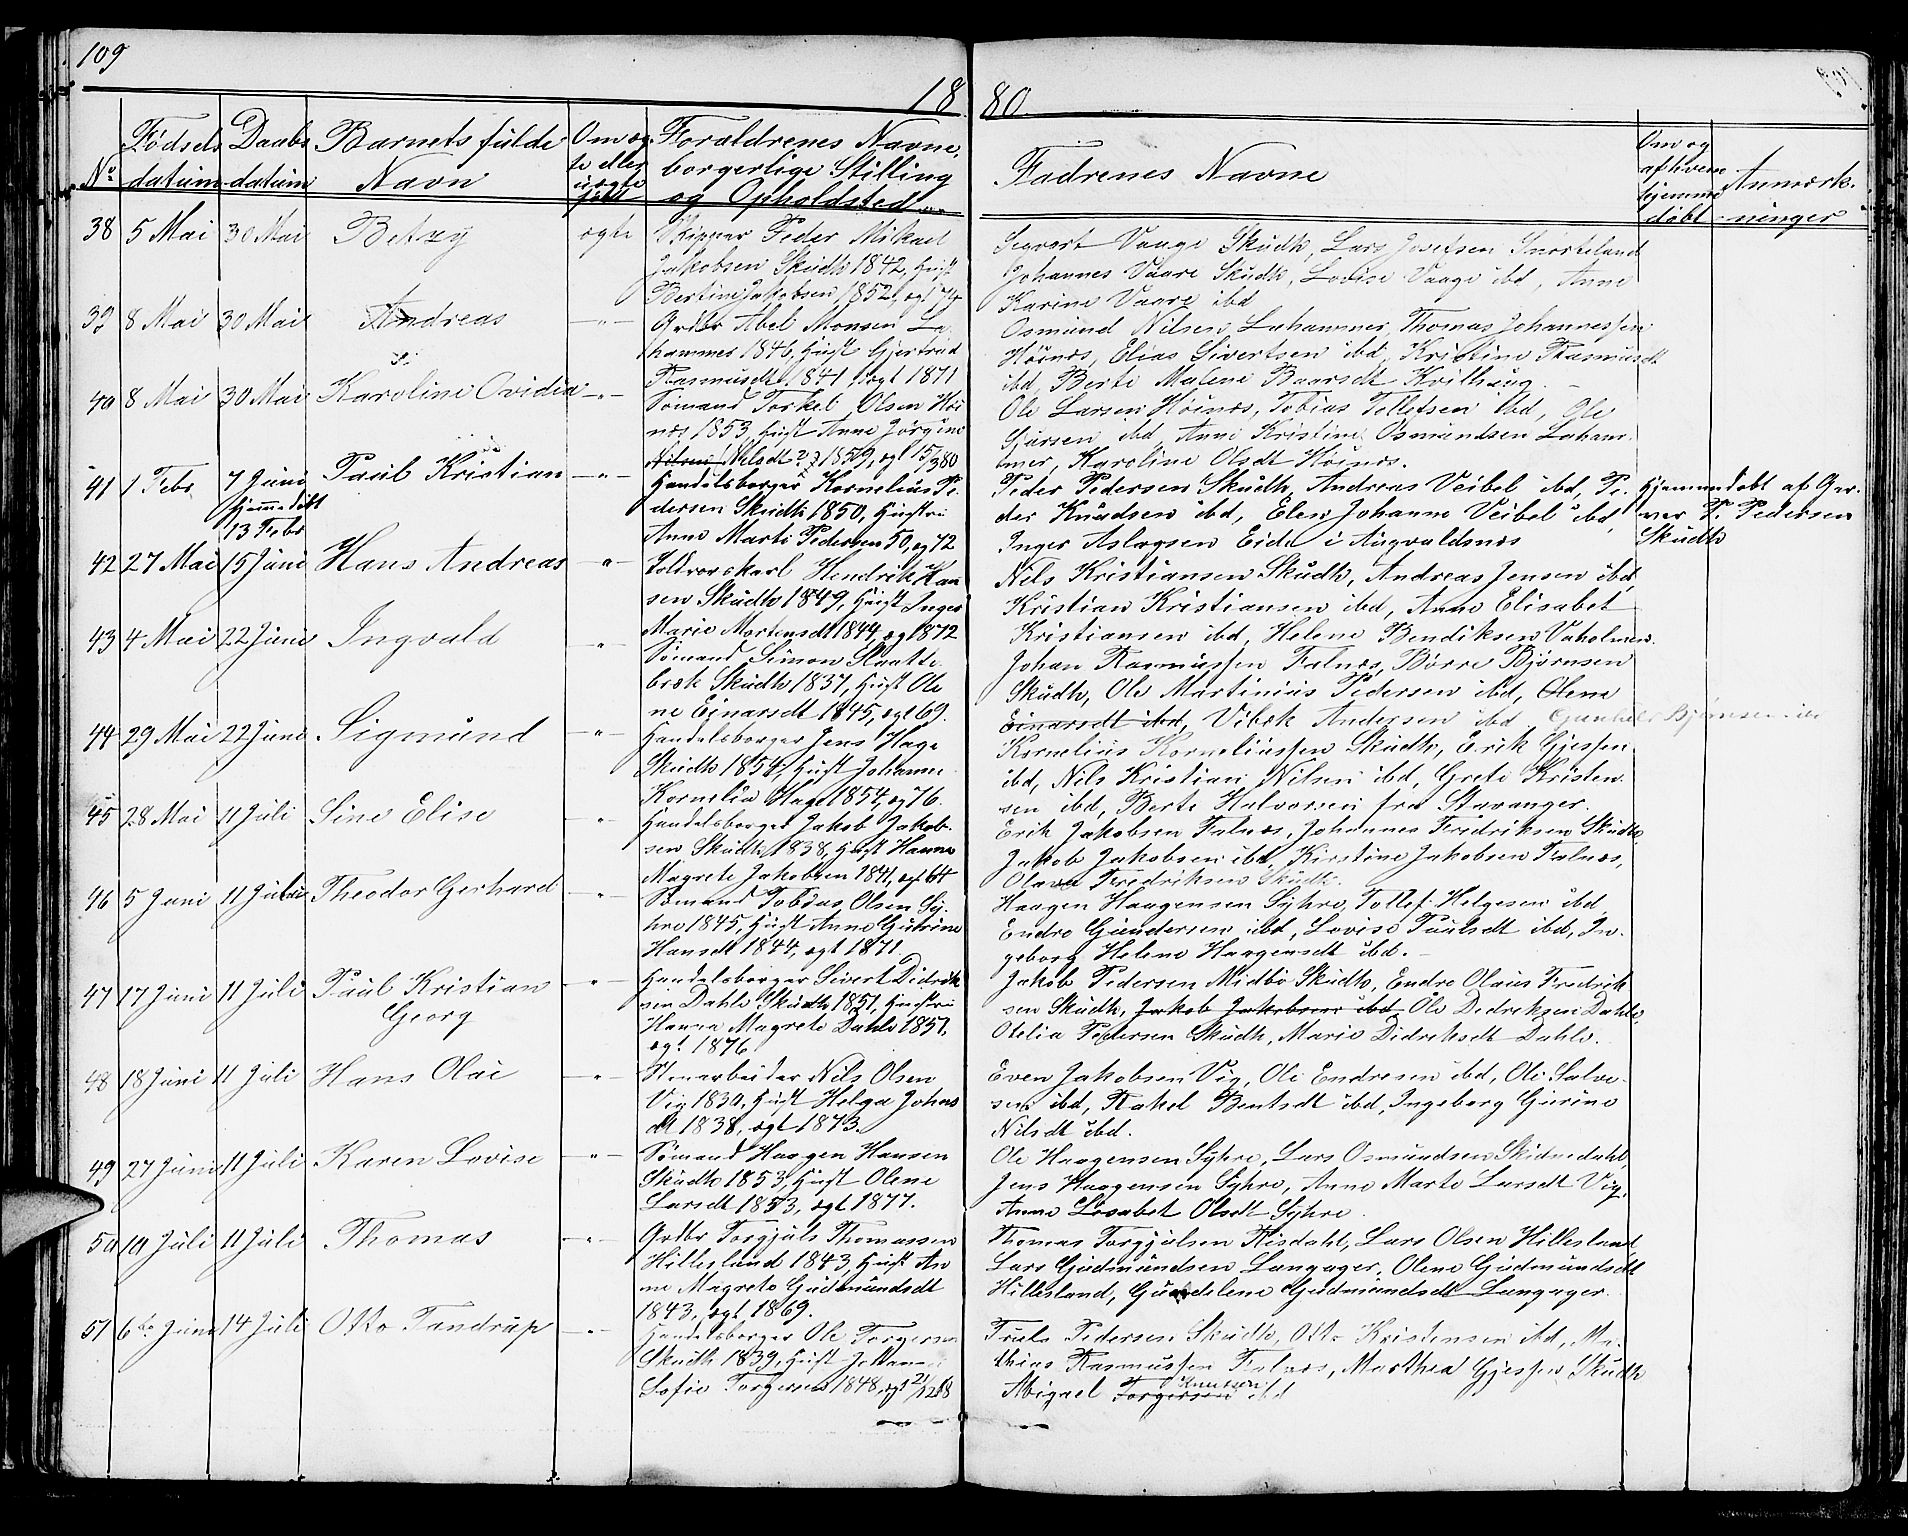 109
18 80.
No
Fødsels datum
Daabs datum
Barnets fulde Navn
Om ægte eller uægte født
Forældrenes Navne, borgerlige Stilling og Opholdsted
Fadrenes Navne
Om og af hvem hjemme døbt
Anmærkninger
38 5 Mai 30 Mai Betzy ægte Skipper Peder Mikael
Jakobsen Skudh 1842, Hust
Bertine Jakobsen 1852, ægt
Vaage Skudh, Lars Josefsen Snorteland
Johannes Vaare Skudh, Lovise Vaage ibd, Anne
Karine Vaare ibd
39 8 Mai 30 Mai Andreas -"- Grdbr Abel Monsen La
hammer 1846, Hust Gjertrud
Rasmusdt 1841 ægt 1871
Osmund Nilsen Lahammer, Thomas Johannessen
Høinæs, Elias Sivertsen ibd, Kristine Rasmusdt
ibd, Berte Malene Baarsdt
40 8 Mai 30 Mai Karoline Ovidia -"- Sømand Torkel Olsen Høi
næs 1853, Hust Anne Jørgine
Nilsen Nilsdt ? 1859, ægt 15/3 80
Ole Larsen Høinæs, Tobias Tollefsen ibd, Ole
ibd, Anne Kristine Osmundsen Laham
mer, Karoline Olsdt Høinæs.
41 1 Febr 7 Juni Paul Kristian -"- Handelsborger Kornelius Pe
Hjemmedøbt
13 Febr
dersen Skudh 1850, Hustru
Anne Marte Pedersen 50, ægt 72
Peder Pedersen Skudh, Andreas Veibel ibd, Pe
der Knudsen ibd, Elen Johanne Veibel ibd,
Inger Aslagsen Eide i Augvaldsnæs
Hjemmedøbt af Gar
ver P. Pedersen
Skudh
42 27 Mai 15 Juni Hans Andreas -"- Toldroerskarl Hendrik Han
sen Skudh 1849, Hust Inger
Marie Mortensdt 1844, ægt 1872
Nils Kristiansen Skudh, Andreas Jensen ibd,
Kristian Kristiansen ibd, Anne Elisabet
Kristiansen ibd, Helene Bendiksen Vaholmen.
43 4 Mai 22 Juni Ingvald -"- Sømand Simon Slaatte
bræk Skudh 1837, Hust Ole
ne Ejnarsdt 1845, ægt 69.
Johan Rasmussen Falnæs, Børre Bjørnsen
Skudh, Ole Martinius Pedersen ibd, Olene
Einarsdt ibd, Vibek Andersen ibd. Gunhild Bjørnsen ibd
44 29 Mai 22 Juni Sigmund -"- Handelsborger Jens Hage
Skudh 1854, Hust Johanne
Kornelia Hage 1854, ægt 76.
Kornelius Korneliussen Skudh, Erik Gjessen
ibd, Nils Kristian Nilsen ibd, Grete Kristen
sen ibd, Berte Halvorsen fra Stavanger.
45 28 Mai 11 Juli Sine Elise -"- Handelsborger Jakob Jakob
sen Skudh 1838, Hust Hanne
Magrete Jakobsen 1841, ægt 64
Erik Jakobsen Falnæs, Johannes Fredriksen Skudh,
Jakob Jakobsen ibd, Kirstine Jakobsen Falnæs,
Olava Fredriksen Skudh.
46 5 Juni 11 Juli Theodor Gerhard -"- Sømand Tobias Olsen Sy
hre 1845, Hust Anne Gurine
Hansdt 1844, ægt 1871.
Haagen Haagensen Syhre, Tollef Helgesen ibd,
Endre Gundersen ibd, Lovise Paulsdt ibd, In
geborg Helene Haagensdt ibd.
47 17 Juni 11 Juli Paul Kristian Georg -"- Handelsborger Sivert Didrik
sen Dahle Skudh 1851, Hustru
Hanna Magrete Dahle 1851.
ægt 1876.
Jakob Pedersen Midbø Skudh, Endre Olaus Fredrik
sen Skudh, Jakob Jakobsen ibd, Ole Dedriksen Dahle,
Otelia Pedersen Skudh, Marie Didriksdt Dahle.
48 18 Juni 11 Juli Hans Olai -"- Stenarbeider Nils Olsen
Vig 1830, Hust Helga Johns
dt 1838, ægt 1873.
Even Jakobsen Vig, Ole Endresen ibd, Ole Salve
sen ibd, Rakel Bentsdt ibd, Ingeborg Gurine
Nilsdt ibd.
49 27 Juni 11 Juli Karen Lovise -"- Sømand Haagen Hansen
Skudh 1853, Hust Olene
Larsdt 1853, ægt 1877.
Ole Haagensen Syhre, Lars Osmundsen Skidnedahl,
Jens Haagensen Syhre, Anne Marte Larsdt Vig,
Anne Lisabet Olsdt Syhre.
50 10 Juli 11 Juli Thomas -"- Grdbr Torgjuls Thomassen
Hillesland 1843, Hust An
ne Magrete Gudmundsdt
1843, ægt 1869.
Thomas Torgjulsen Risdahl, Lars Olsen Hillesland,
Lars Gudmundsen Langager, Olene Gudmundsdt
Hillesland, Gudmundsdt Langager.
51 6te Juni 14 Juli Otto Tandrup -"- Handelsborger Ole Torgersen
Skudh 1839, Hust Johanne
Sofie Torgersen 1848, ægt
Truls Pedersen Skudh, Otto Kristensen ibd, Ma
thias Rasmussen Falnæs, Marthea Gjessen Skudh
Abigael Torgersen Knutsen ibd